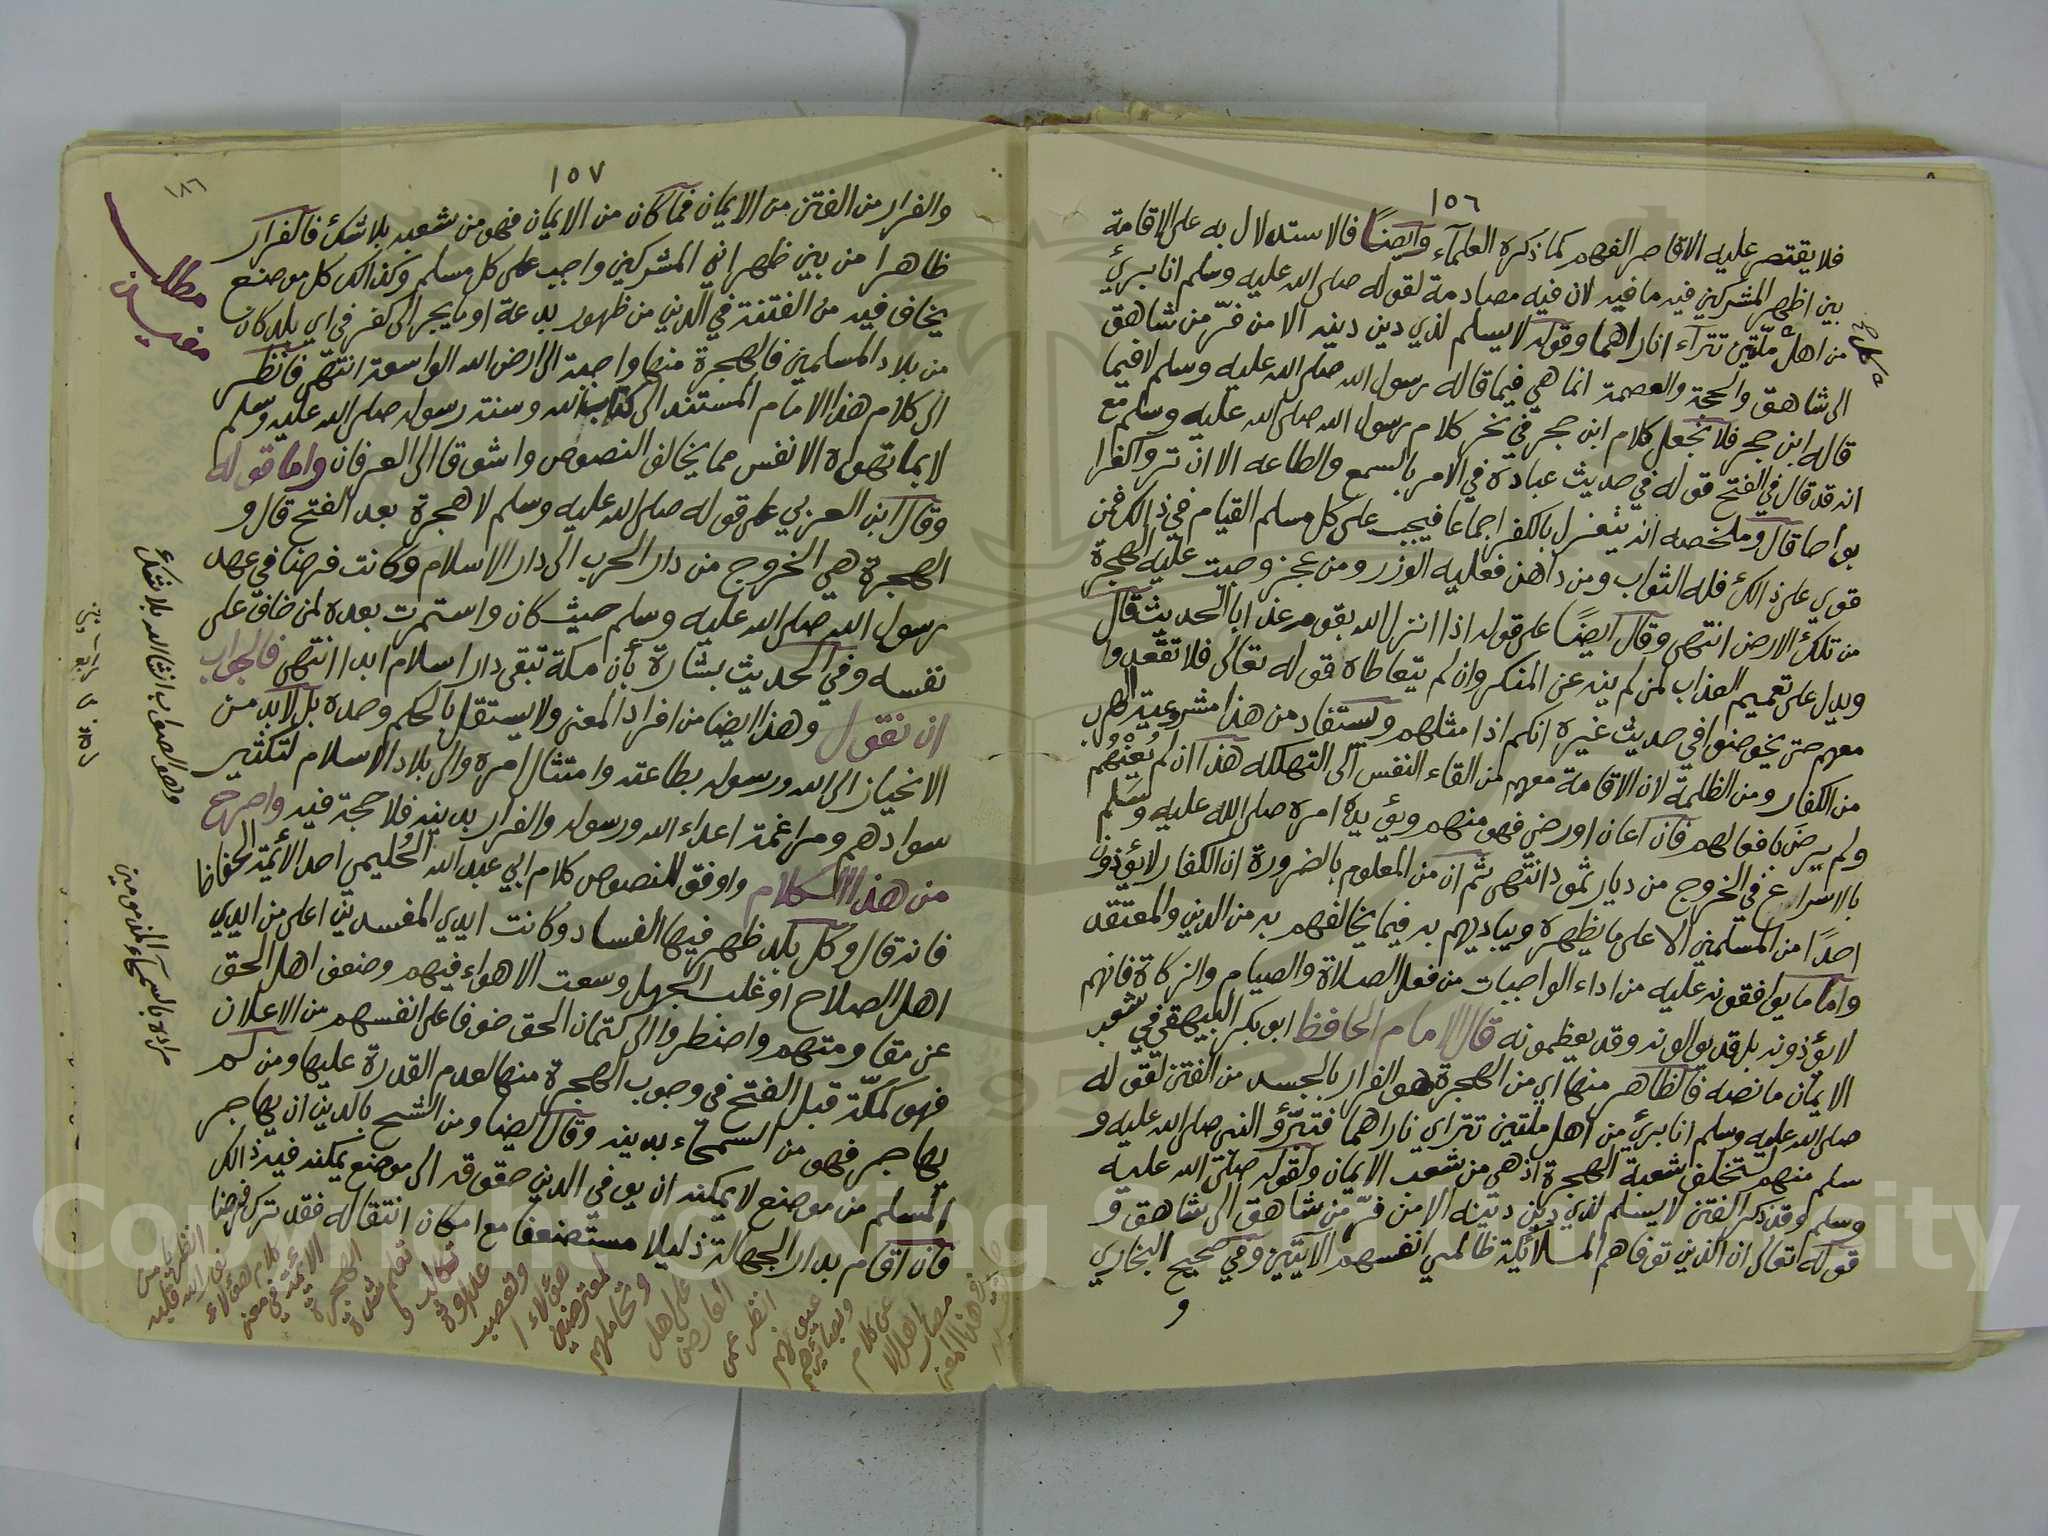 ١٥٦
فلا يقتصر عليه الا قاصر الفهم كما ذكره العلمآء وايضًا فالاستدلال به على الاقامة
بين اظهر المشركين فيه ما فيه لان فيه مصادمة لقوله صلى الله عليه وسلم انا برئ
من اهل ملّتين تترآء اناراهما وقوله لا يسلم لذي دين دينه الا من فرّ من شاهق
الى شاهق والحجة والعصمة انما هي فيما قاله رسول الله صلى الله عليه وسلم لا فيما
قاله ابن حجر فلا نجعل كلام ابن حجر في نحر كلام رسول الله صلى الله عليه وسلم مع
انه قد قال في الفتح قوله في حديث عبادة في الامر بالسمع والطاعه الا ان تروا كفرا
بواحا قال وملخصه انه ينعزل بالكفر اجماعا فيجب على كل مسلم القيام في ذالك فمن
قوي على ذالك فله الثواب ومن داهن فعليه الوزر ومن عجز وجبت عليه الهجرة
من تلك الارض انتهى وقال ايضًا على قوله اذا انزل الله بقوم عذابا الحديث قال
ويدل على تعميم العذاب لمن لم ينه عن المنكر وان لم يتعاطاه قوله تعالى فلا تقعدوا
معهم حتى يخوضوا في حديث غيره انكم اذا مثلهم ويستفاد من هذا مشروعية الهرب
من الكفار ومن الظلمة لان الاقامة معهم من القاء النفس الى التهلكه هذا ان لم يُعِنْهُم
ولم يرضَ بافعالهم فان اعان او رضي فهو منهم ويؤيده امره صلى الله عليه وسلم
بالاسراع في الخروج من ديار ثمود انتهى ثم ان من المعلوم بالضرورة ان الكفار لا يؤذون
احدًا من المسلمين الا على ما يظهره ويباديهم به فيما يخالفهم به من الدين والمعتقد
واما ما يوافقونه عليه من اداء الواجبات من فعل الصلاة والصيام والزكاة فانهم
لا يؤذونه بل قد يوالونه وقد يعظمونه قال الامام الحافظ ابو بكر البيهقي في شعب
الايمان ما نصه فالظاهر منها اي من الهجرة هو الفرار بالجسد من الفتن لقوله
صلى الله عليه وسلم انا برئ من اهل ملتين تتراى ناراهما فتبرّؤ النبي صلى الله عليه و
سلم منهم لتخلف شعبة الهجرة اذ هي من شعب الايمان ولقوله صلى الله عليه
وسلم وقد ذكر الفتن لا يسلم لذي دين دينه الا من فرّ من شاهق الى شاهق و
قوله تعالى ان الذين توفاهم الملائكة ظالمي انفسهم الآيتين وفي صحيح البخاري
و
١٥٧
والفرار من الفتن من الايمان فما كان من الايمان فهو من شعبه بلا شك فالفرار
ظاهرا من بين ظهراني المشركين واجب على كل مسلم وكذالك كل موضع
يخاف فيه من الفتنة في الدين من ظهور بدعة او ما يجر الى كفر في اي بلد كان
من بلاد المسلمين فالهجرة منها واجبة الى ارض الله الواسعة انتهى فانظر
الى كلام هذا الامام المستند الى كتاب الله وسنة رسوله صلى الله عليه وسلم
لا بما تهواه الانفس مما يخالف النصوص واشوقا الى العرفان واما قوله
وقال ابن العربي على قوله صلى الله عليه وسلم لا هجرة بعد الفتح قال و
الهجرة هي الخروج من دار الحرب الى دار الاسلام وكانت فرضا في عهد
رسول الله صلى الله عليه وسلم حيث كان واستمرت بعده لمن خاف على
نفسه وفي الحديث بشارة بأن مكة تبقى دار اسلام ابدا انتهى فالجواب
ان نقول وهذا ايضا من افراد المعنى ولا يستقل بالحكم وحده بل لابد من
الانحياز الى الله ورسوله بطاعته وامتثال امره والى بلاد الاسلام لتكثير
سوادهم ومراغمة اعداء الله ورسوله والفرار بدينه فلا حجة فيه واصرح
من هذا الكلام واوفق للنصوص كلام ابي عبد الله الحُليمي احد الأئمة الحفاظ
فانه قال وكل بلد ظهر فيها الفساد وكانت ايدي المفسدين اعلى من ايدي
اهل الصلاح او غلب الجهل وسعت الاهواء فيهم وضعف اهل الحق
عن مقاومتهم واضطروا الى كتمان الحق خوفا على انفسهم من الاعلان
فهو كمكّة قبل الفتح في وجوب الهجرة منها لعدم القدرة عليها ومن لم
يهاجر فهو من السمحآء بدينه وقال ايضا ومن الشح بالدين ان يهاجر
المسلم من موضع لا يمكنه ان يوفي الدين حقوقه الى موضع يمكنه فيه ذالك
فان اقام بدار الجهالة ذليلا مستضعفا مع امكان انتقاله فقد ترك فرضا
مطلب
وهو الصواب انشا الله بلا شك
مراده بالسمحآء المذمومين
انظر يا من
نور الله قلبه
كلام هؤلاء
الائمة في معنى
الهجرة
تعلم شدة
تكالب و
عداوة
وتعصب
هؤلاء ا
لمعترضين
وتحاملهم
على اهل
العارض
انظر عمى
عيونهم
وبصائرهم
عن كلام